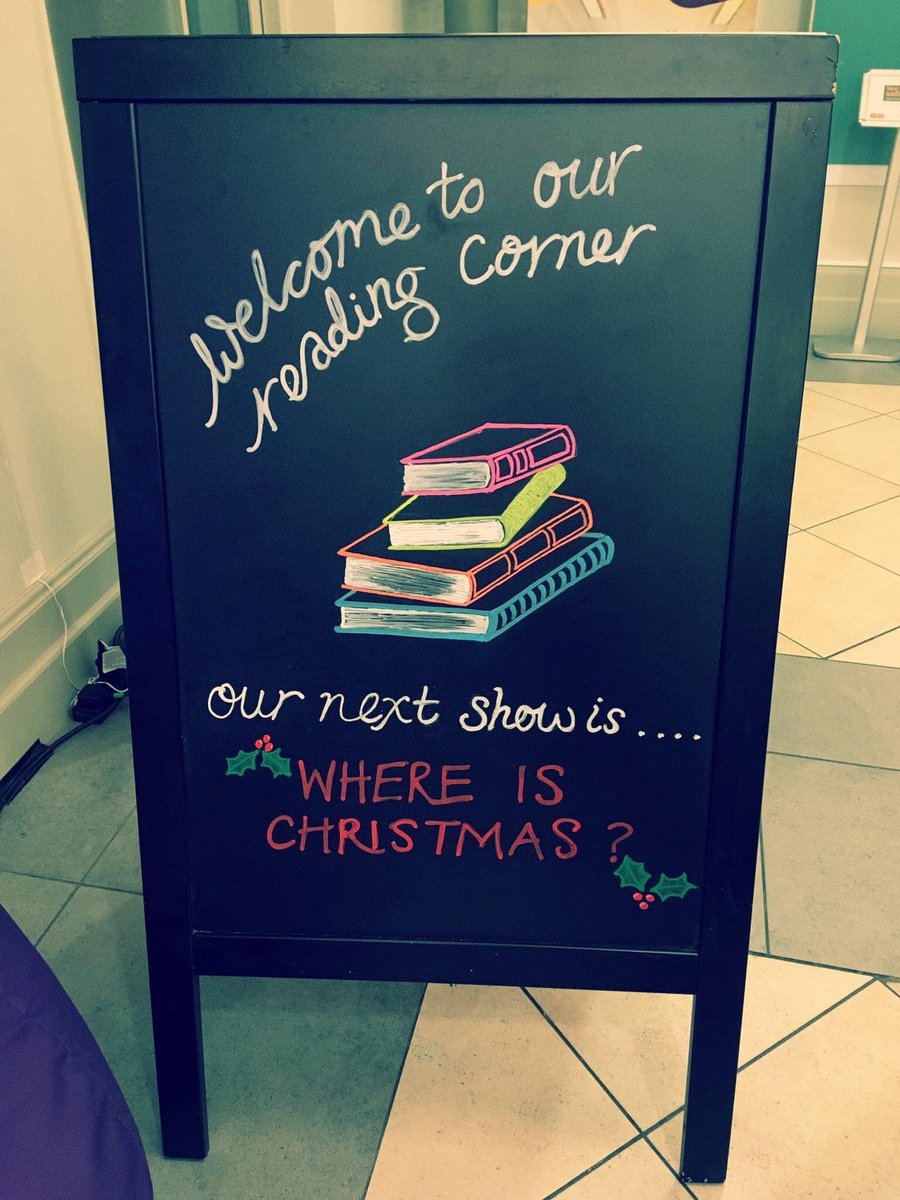 Welcome to our
reading corner
our next show is....
WHERE IS
CHRISTMAS?